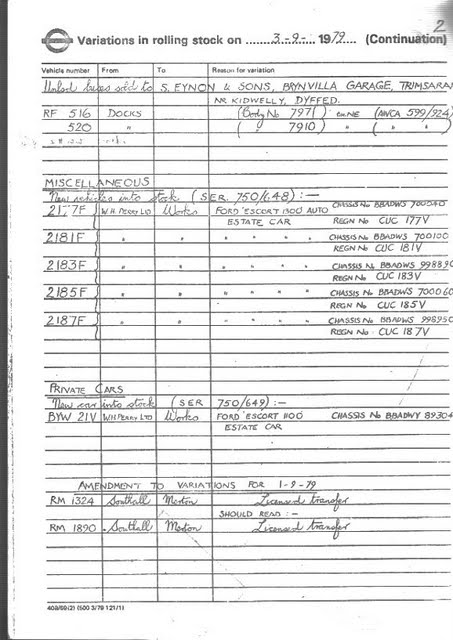 2
Variations in rolling stock on 3-9- 1979 (Continuation)
Vehicle number From To Reason for variation
buses sold to S. EYNON & SONS, BRYNVILLA GARAGE, TRIMSARAN
NR KIDWELLY, DYFFED.
RF 516 DOCKS (Body No 7971) (AWCA 599/924)
520 " ( " 7910) ( " " )
MISCELLANEOUS
New vehicles into stock (SER. 750/648):—
2177F W.H. PERRY LTD Works FORD 'ESCORT 1300' AUTO CHASSIS No BBADWS 700040
ESTATE CAR REGN No CUC 177V
2181F " " " " " " CHASSIS No BBADWS 700100
REGN No CUC 181V
2183F " " " " " " CHASSIS No BBADWS 998890
REGN No CUC 183V
2185F " " " " " " CHASSIS No BBADWS 700060
REGN No CUC 185V
2187F " " " " " " CHASSIS No BBADWS 998950
REGN No CUC 187V
PRIVATE CARS
New car into stock (SER 750/649):—
BYW 21V W.H. PERRY LTD Works FORD 'ESCORT 1100' CHASSIS No BBADWY 89304
ESTATE CAR
AMENDMENT TO VARIATIONS FOR 1-9-79
RM 1324 Southall Merton Licensed transfer
SHOULD READ :-
RM 1890 Southall Merton Licensed transfer